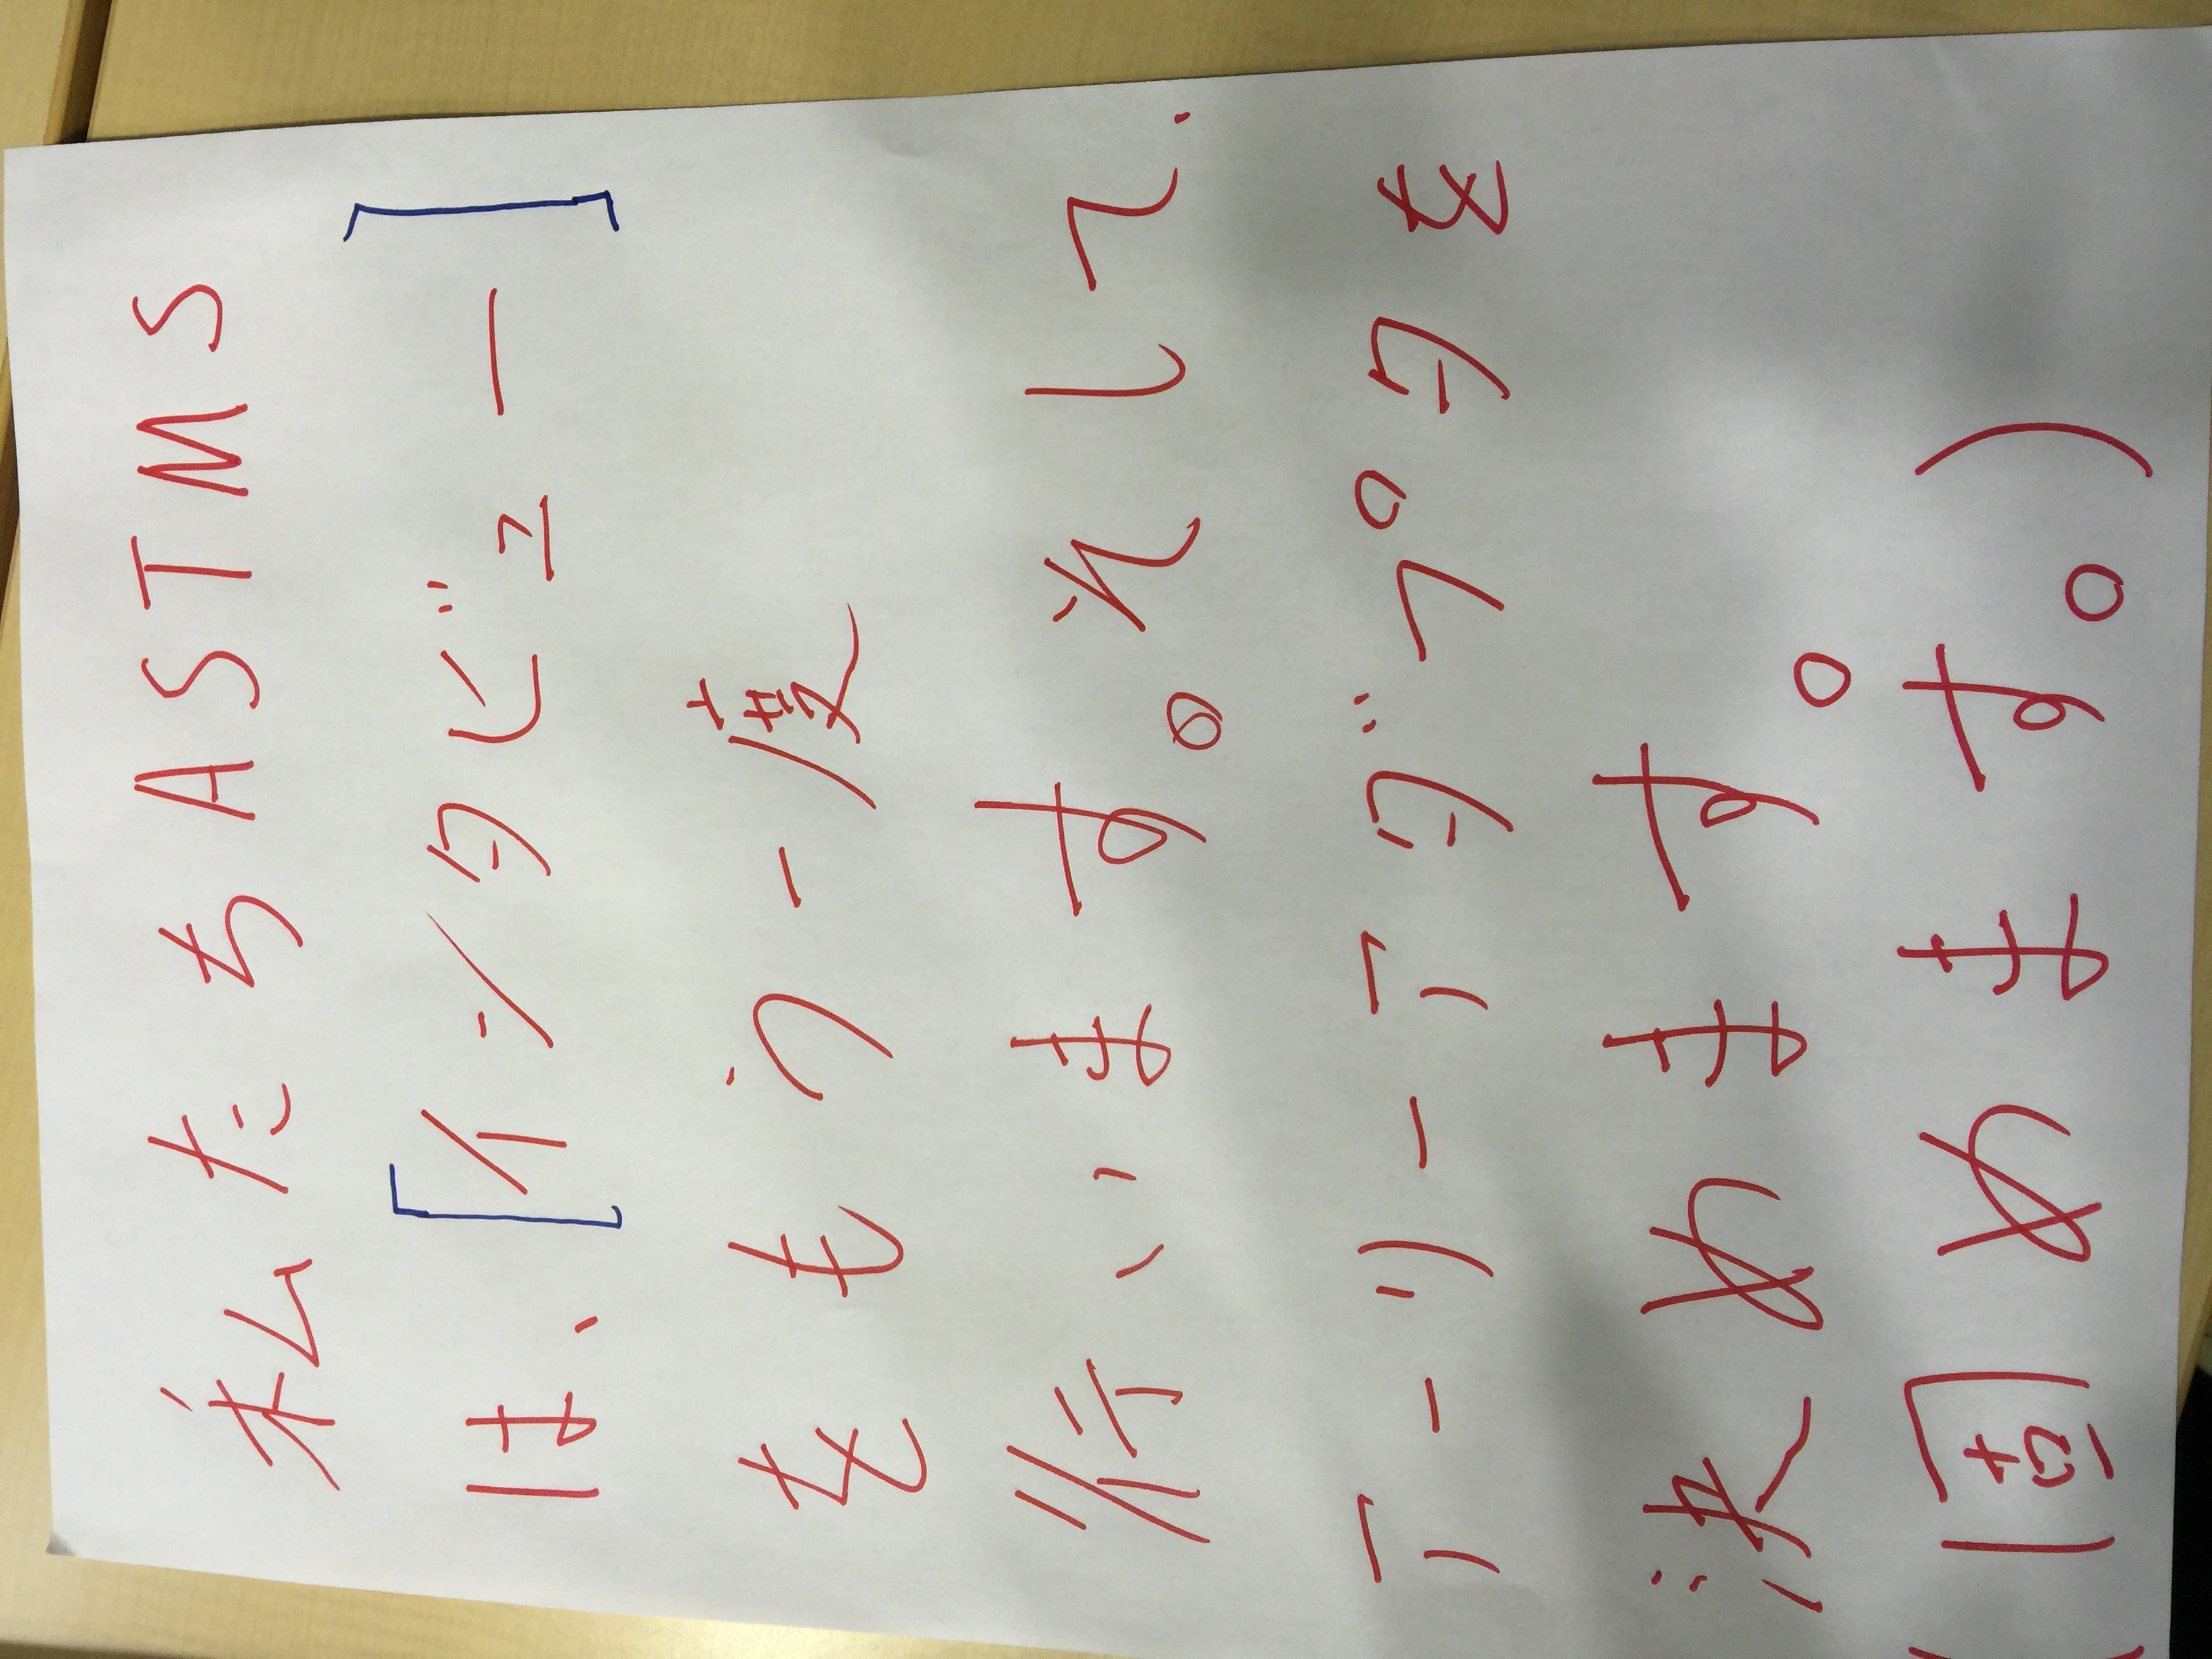 私たちASTMS
は、[インタビュー]
をもう一度
行います。そして、
アーリーアダプタを
決めます。
(固めます。)